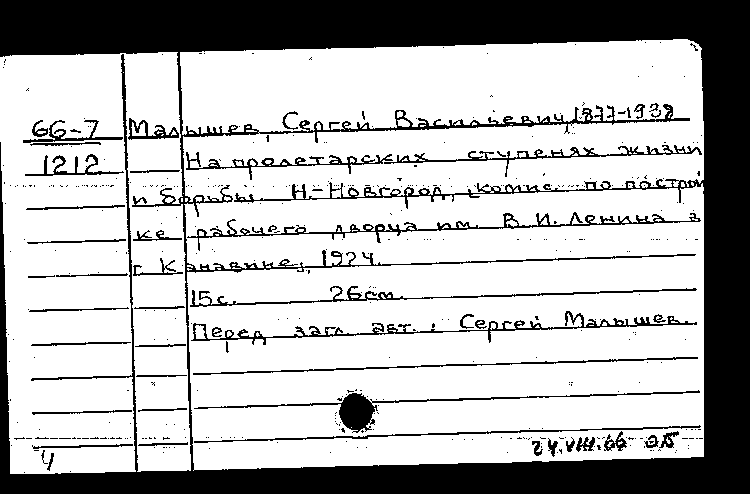 66-7 Малышев, Сергей Васильевич, 1877-1938
1212 На пролетарских ступенях жизни
и борьбы. Н.-Новгород, [комис. по построй
ке рабочего дворца им. В.И. Ленина в
г. Канавине], 1924.
15с. 26см.
Перед загл. авт.: Сергей Малышев.
24.VIII.66 ЭБ
Ч